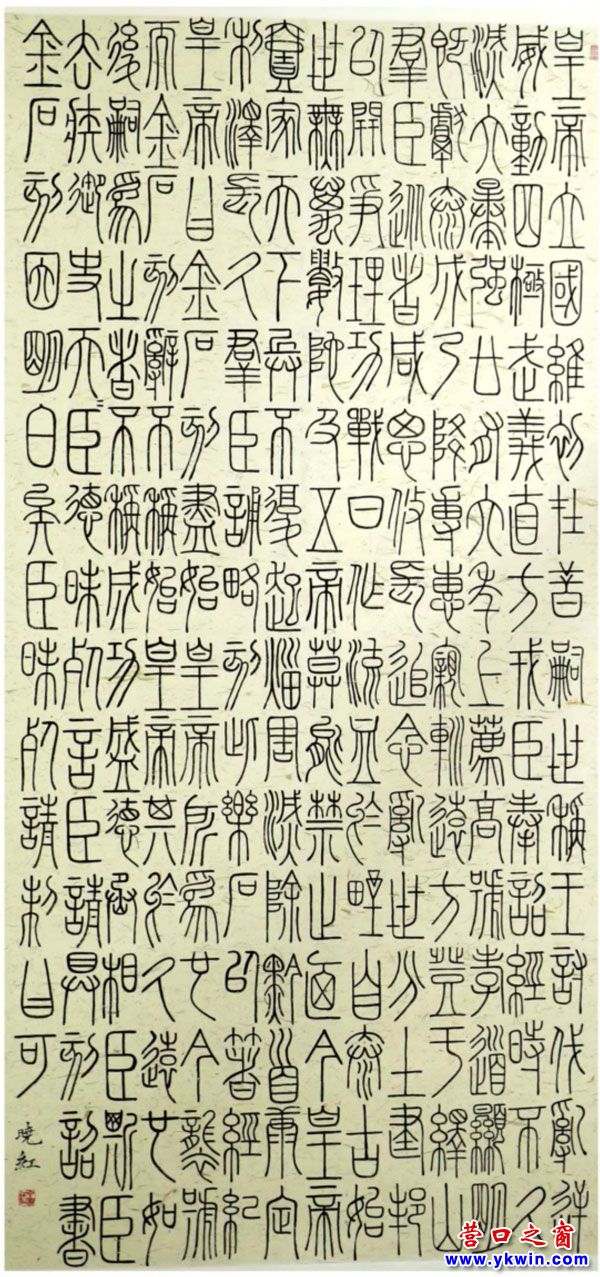 皇帝立國維初在昔嗣世稱王討伐亂逆
威動四極武義直方戎臣奉詔經時不久
滅六暴強廿有六年上薦高號孝道顯明
既獻泰成乃降專惠親巡遠方登于繹山
羣臣從者咸思攸長追念亂世分土建邦
以開爭理功戰日作流血於野自泰古始
世無萬數陀及五帝莫能禁止廼今皇帝
壹家天下兵不復起災害滅除黔首康定
利澤長久羣臣誦略刻此樂石以著經紀
皇帝曰金石刻盡始皇帝所為也今襲號
而金石刻辭不稱始皇帝其於久遠也如
後嗣為之者不稱成功盛德丞相臣斯臣
去疾御史夫=臣德昧死言臣請具刻詔書
金石刻因明白矣臣昧死請制曰可
曉紅
营口之窗
www.ykwin.com